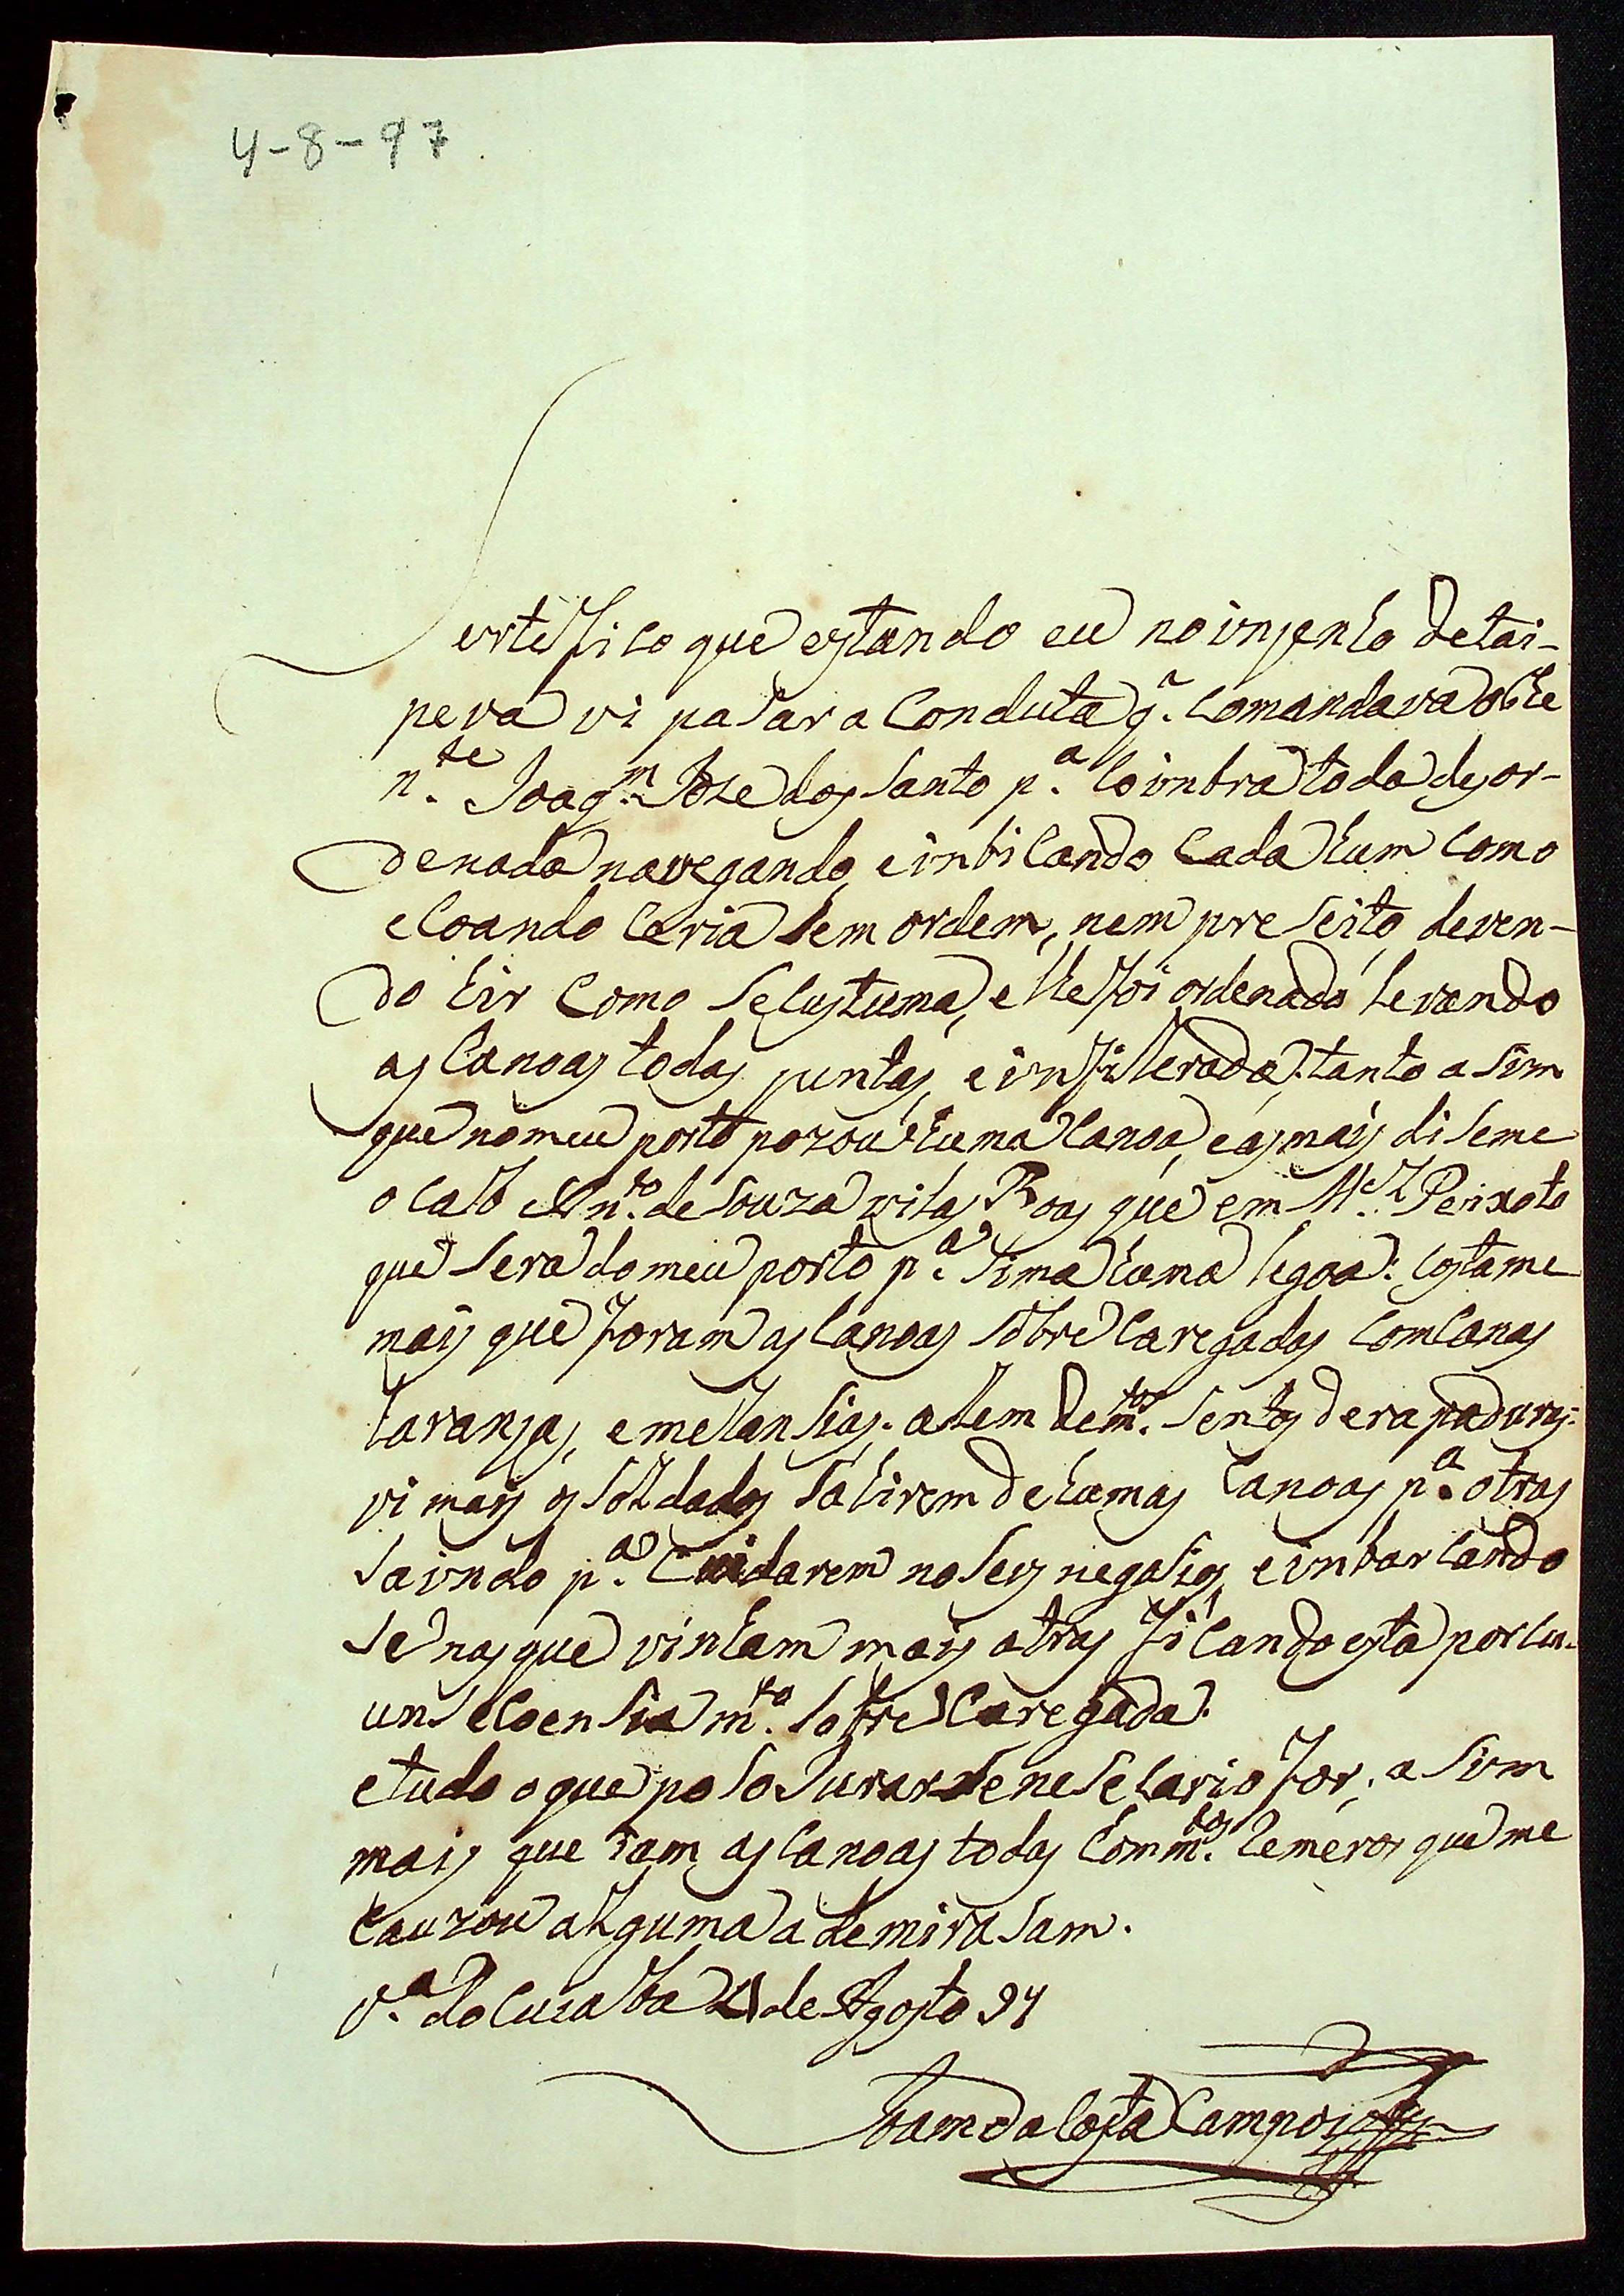 4-8-97
Certefico que estando eu no injenho de tai-
pera vi pasar a Conduta q. Comandava o The
n.te Joaq.m Joze dos Santo p.a Coinbra toda desor-
denada navegando, e inbicando Cada hum Como
e Coando Ceria sem ordem, nem preseito, deven-
do hir Como se custuma, e lhe foi ordenado levando
as Canoas todas juntas, e infilerada: tanto asim
que no meu porto pozou huma Canoa, e as mais diseme
o Cabo Ant.o de Souza vilas Boas que em M.el Peixoto
que sera do meu porto p.a Sima huma legoa: Costame
mais que foram as Canoas Sobre Caregadas Com Canas
laranjas, e melansias. alem de m.tos Sentos de rapaduras:
vi mais os Soldados Sahirem de humas Canoas p.a otras
Saindo p.a Cuidarem no seus negosios, e inbarcando
se nas que vinham mais atras ficando esta por Cu-
unseCoensia m.to Sobre Caregada.
e tudo o que poso Jurar se neseCario for, asim
mais que iam as Canoas todas Com m.tos Cemeros que me
Cauzou alguma ademirasam.
V.a do Cuiaba 4 de Agosto 97
Joam da Costa Campos